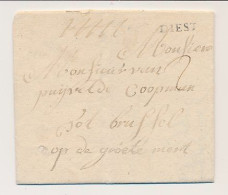 DIEST
Monsieur
Monsieur van
Coopman
tot brussel
op de groote mert